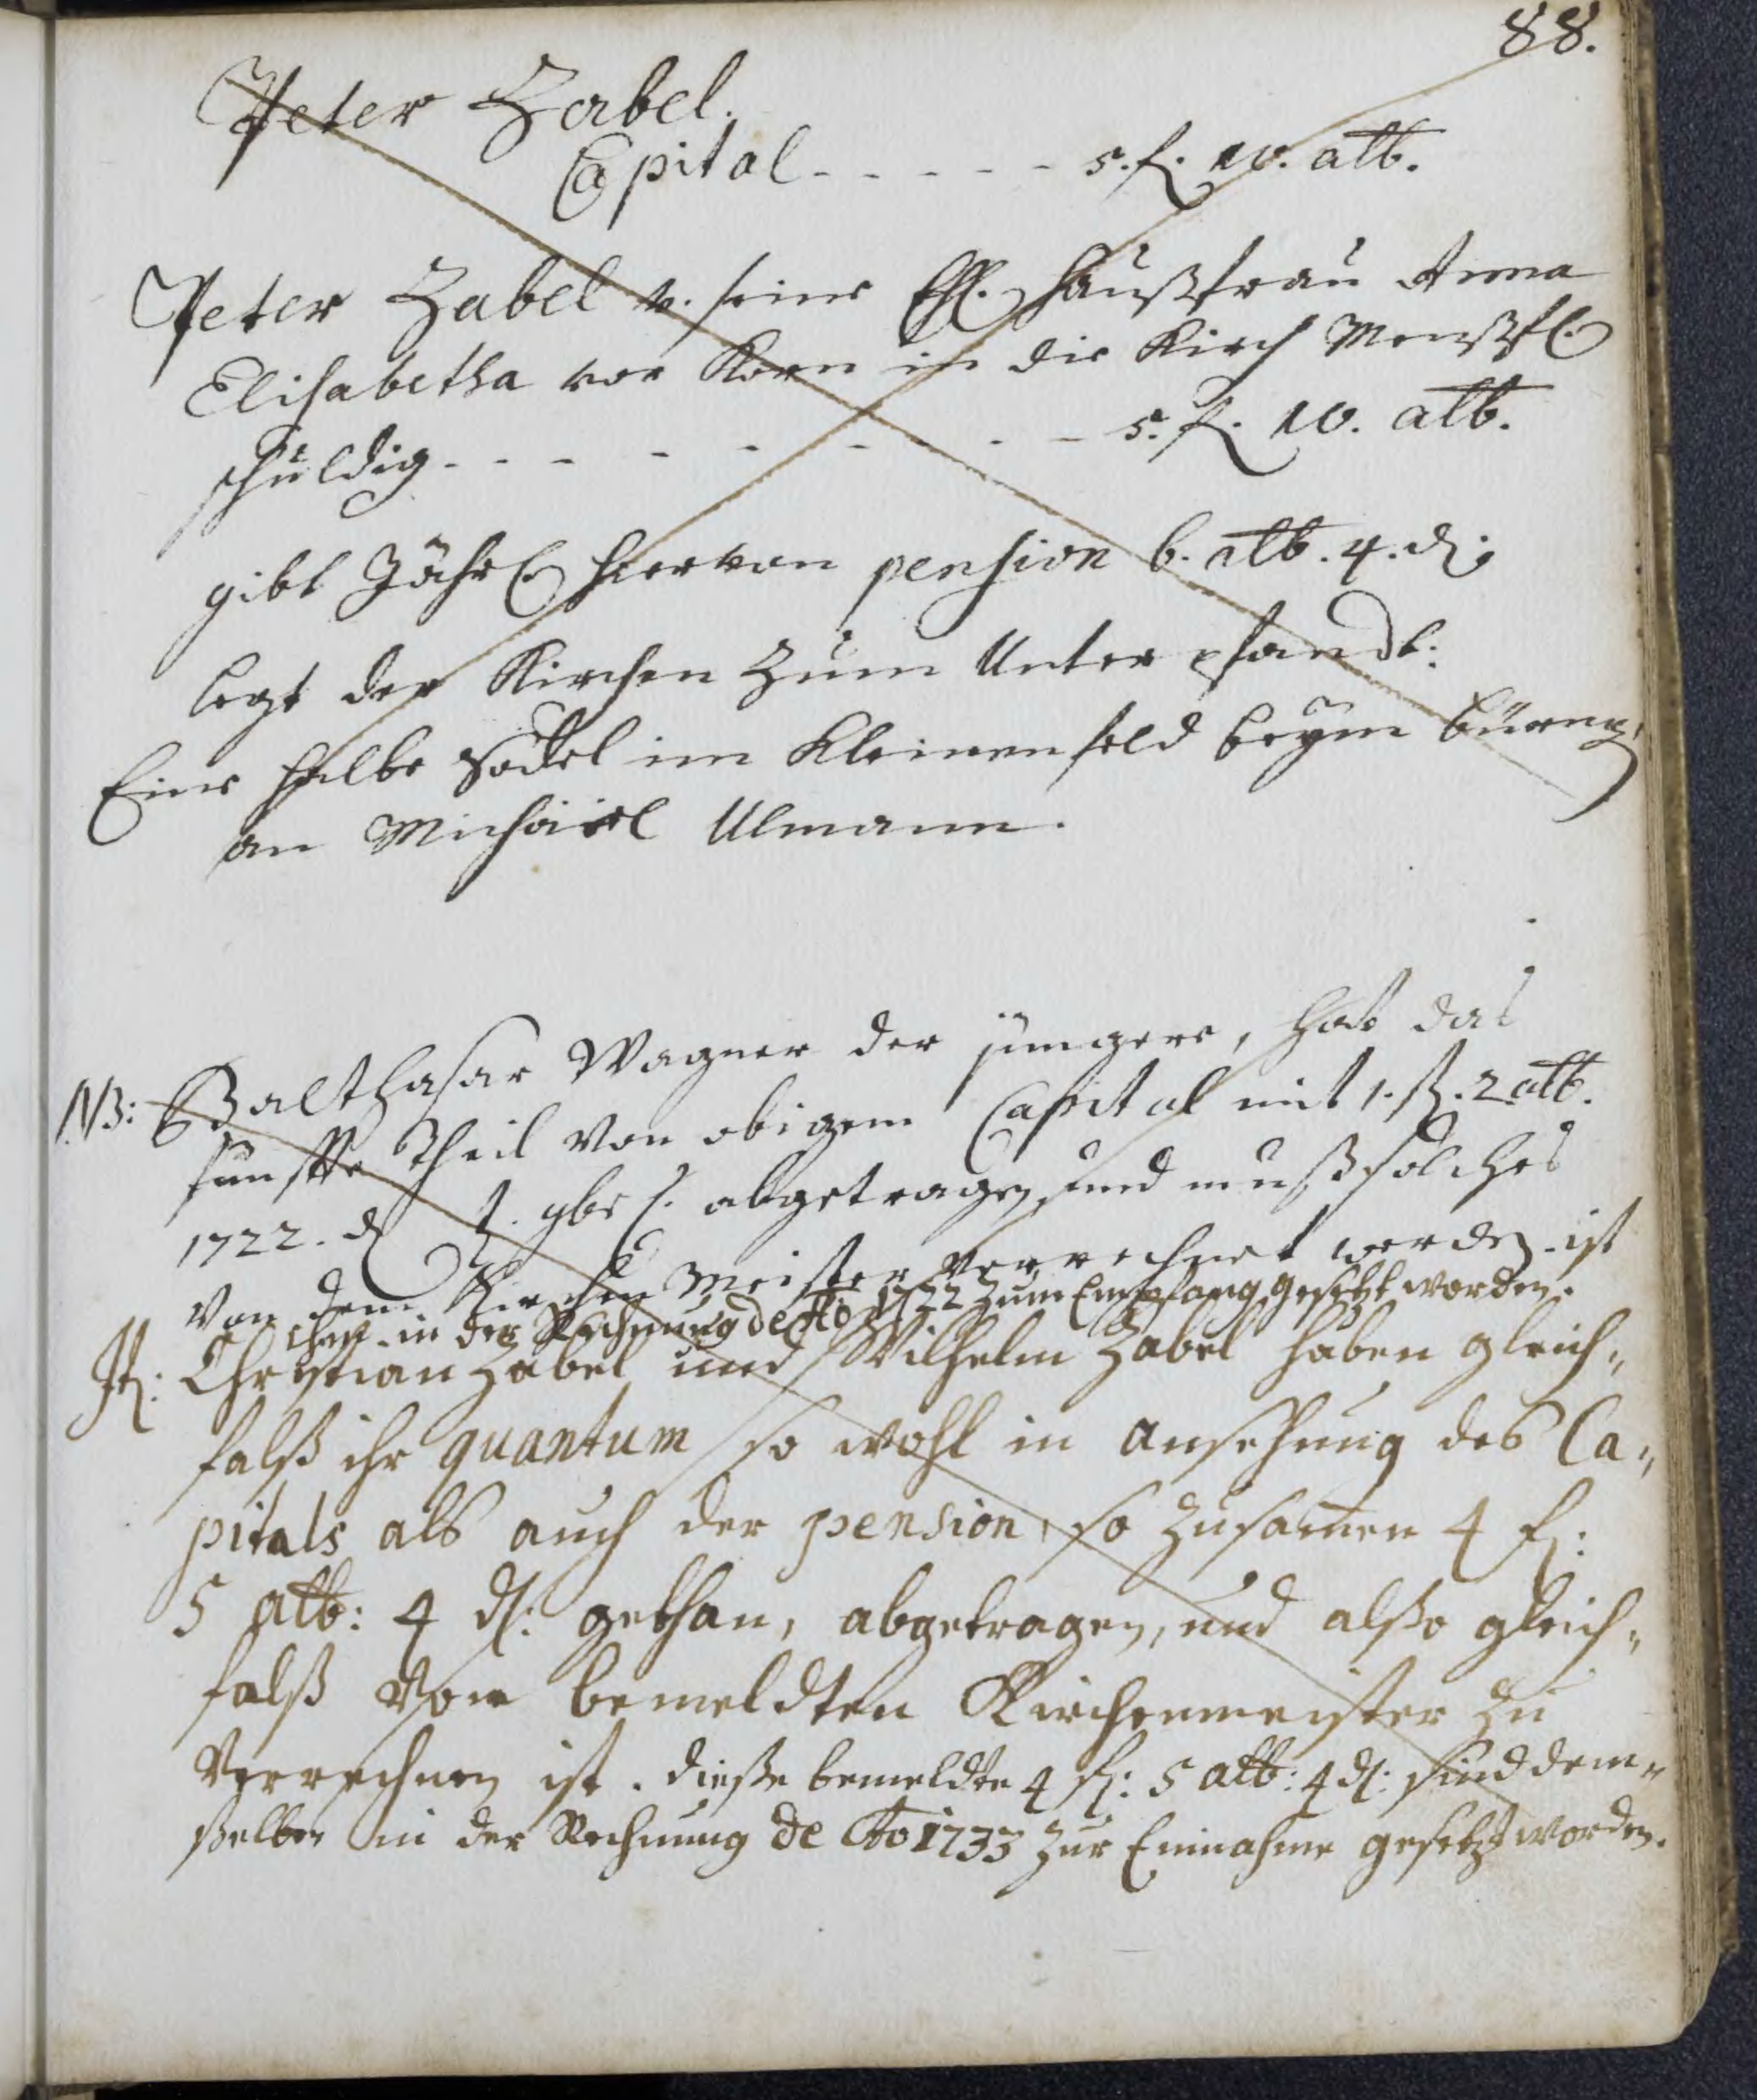 88.
Peter Zabel.
Capital - - - - - 5. f. 10. alb.
Peter Zabel v. seine Ehl. Haußfrau Anna
Elisabetha vor Korn in die Kirch Menßf.
schuldig - - - - - - - - 5. f. 10. alb.
gibt Jährl. hiervon pension 6. alb. 4. d.
legt der Kirchen zum Unter pfandt:
Eine halbe Sodel im Kleinenfeld beym
an Michäel Ulmann.
NB: Balthasar Wagner der jüngere, hat das
funffte Theil von obigem Capital mit 1. fl. 2 alb.
1722. d. 9br. abgetragen und muß solches
Von dem Kirchen Meister verrechnet werden. ist
in der Rechnung de Ao 1722 zum Empfang gesetzt worden.
It: Christian Zabel und Wilhelm Zabel haben gleich„
falß ihr quantum so wohl in ansehung des Ca„
pitals als auch der pension, so zusamen 4 f:
5 alb: 4 d: gethan, abgetragen, und alßo gleich„
falß von bemeldten Kirchenmeister zu
Verrechnen ist. dieße bemeldte 4 f: 5 alb: 4 d: sind dem„
ßelben in der Rechnung de Ao 1733 zur Einnahme gesetzt worden.